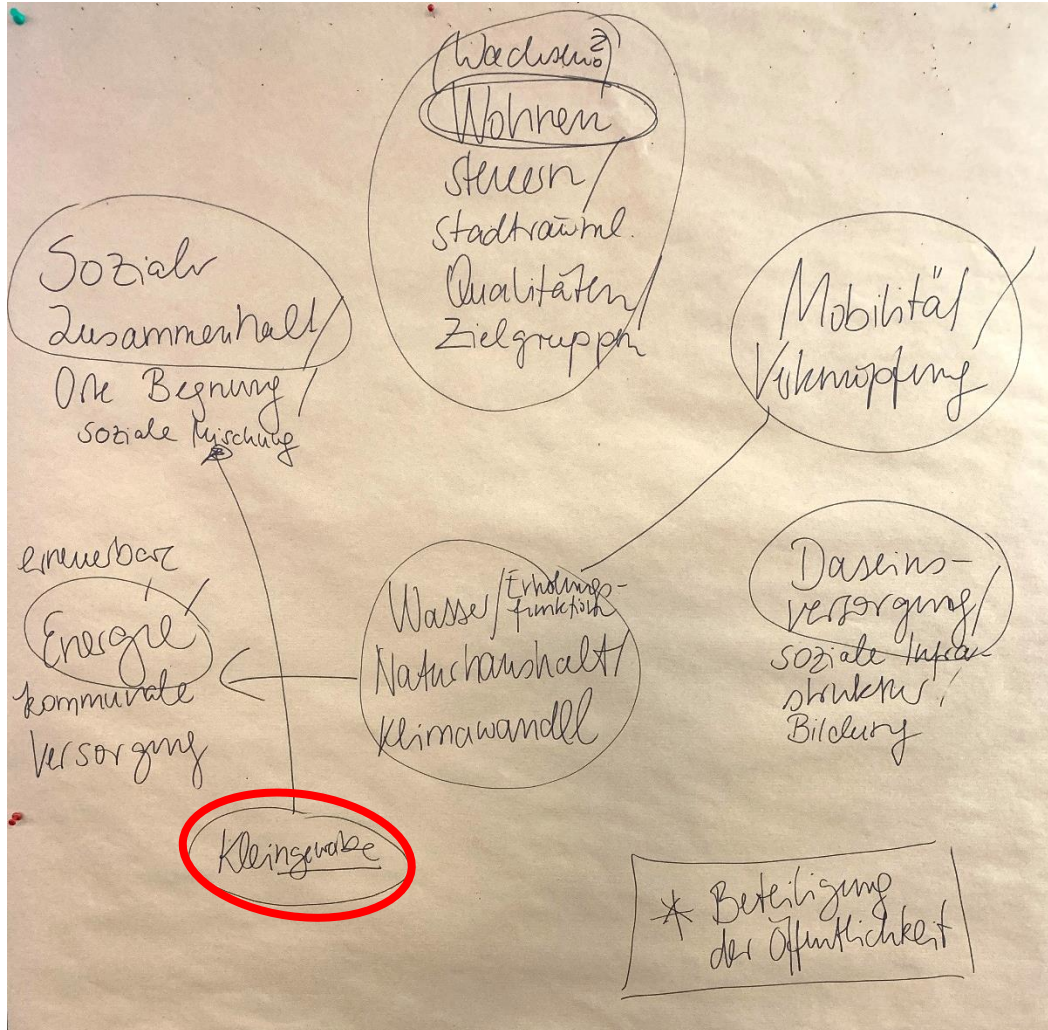 Wachsen?
Wohnen
steuern/
stadträuml.
Qualitäten/
Zielgruppen
Sozialer
Zusammenhalt/
Orte Begnung/
soziale Mischung
Mobilität/
Verknüpfung
erneuerbare
Energie/
kommunale
Versorgung
Wasser/Erholungs-
funktion
Naturhaushalt/
Klimawandel
Daseins-
versorgung/
soziale Infra-
struktur/
Bildung
Kleingewerbe
* Beteiligung
der Öffentlichkeit